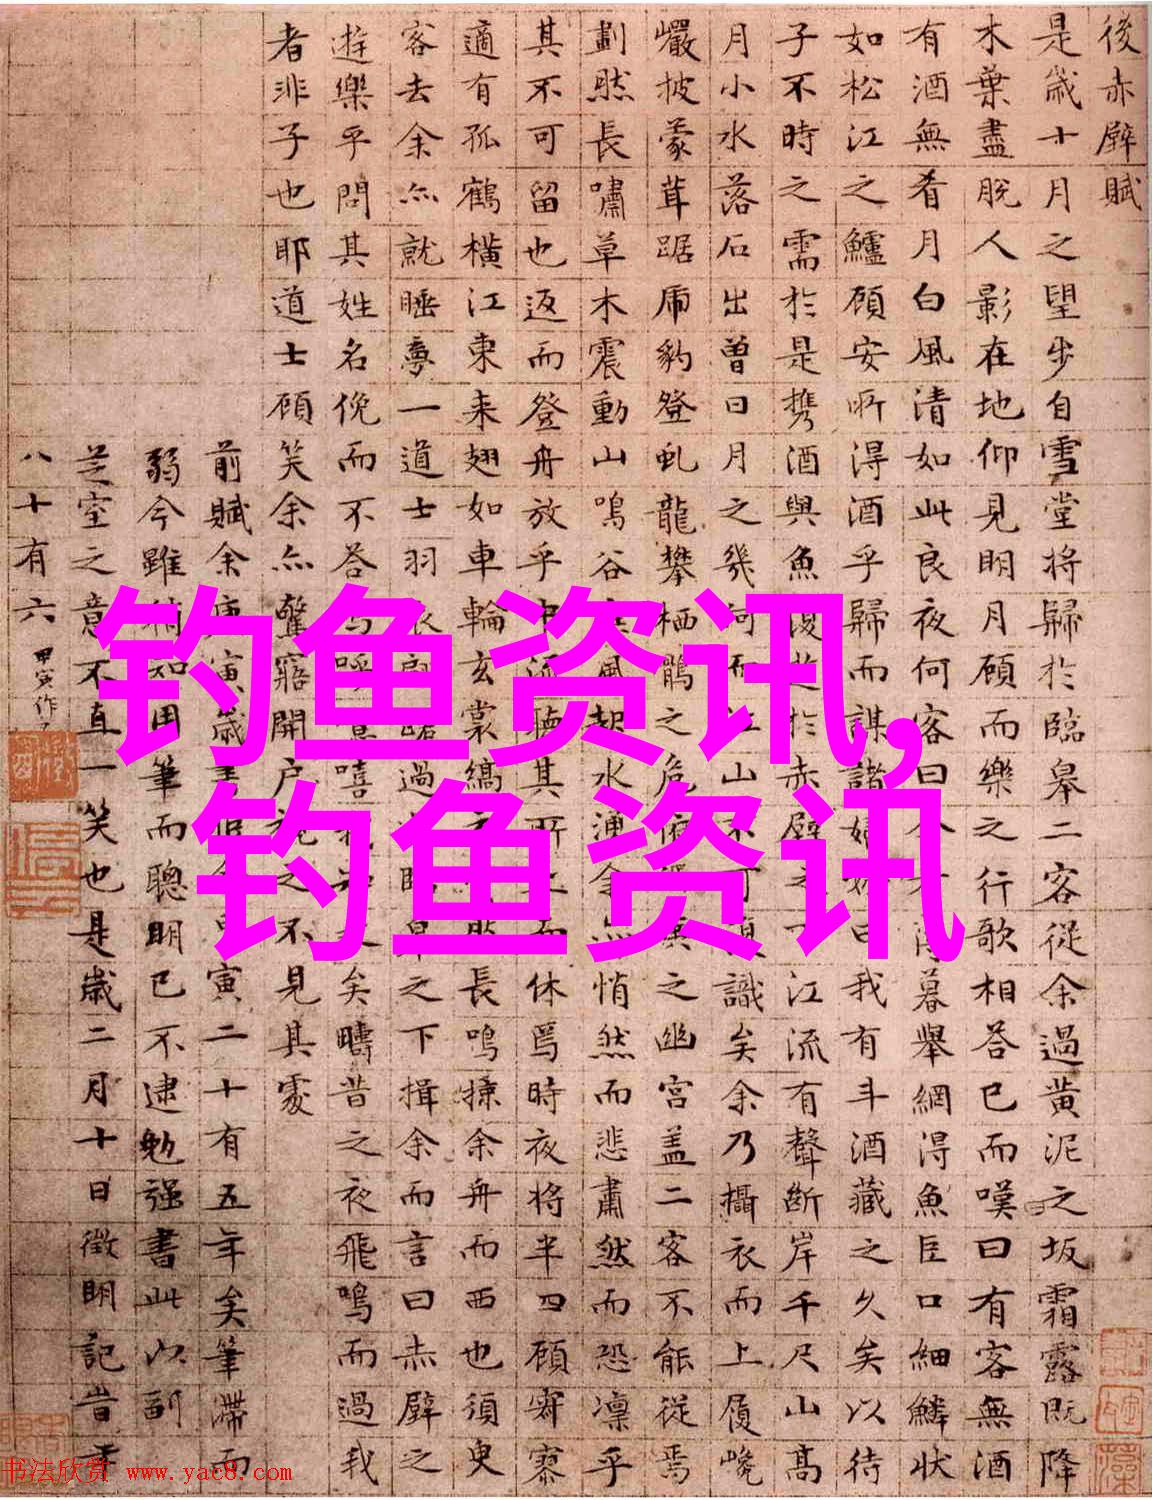 後赤壁賦
是歲十月之望步自雪堂將歸於臨皋二客從余過黄泥之坂霜露既降
木葉盡脫人影在地仰見明月顧而樂之行歌相答已而嘆曰有客無酒
有酒無肴月白風清如此良夜何客曰今者薄暮舉網得魚巨口細鱗狀
如松江之鱸顧安所得酒乎歸而謀諸婦婦曰我有斗酒藏之久矣以待
子不時之需於是攜酒與魚復遊於赤壁之下江流有聲斷岸千尺山高
月小水落石出曾日月之幾何而江山不可復識矣余乃攝衣而上履巉
巖披蒙茸踞虎豹登虬龍攀栖鶻之危俯之幽宮蓋二客不能從焉
劃然長嘯草木震動山鳴谷風起水涌余亦悄然而悲肅然而恐凜乎
其不可留也返而登舟放乎中流聽其所止而休焉時夜將半四顧寂寥
適有孤鶴橫江東来翅如車輪玄裳縞衣然長鳴掠余舟而西也須臾
客去余亦就睡夢一道士羽衣過臨皋之下揖余而言曰赤壁之
遊樂乎問其姓名俛而不答嗚呼噫嘻我知之矣疇昔之夜飛鳴而過我
者非子也耶道士顧笑余亦驚寤開户視之不見其處
前賦余庚寅歲寅二十有五年矣筆滯而
弱今雖稍知用筆而聰明已不逮勉强書此以副
芝室之意不直一笑也是歲二月十日徵明記昔年
八十有六
甲寅作
钓鱼资讯,
钓鱼资讯
书法欣赏 www.yac8.com